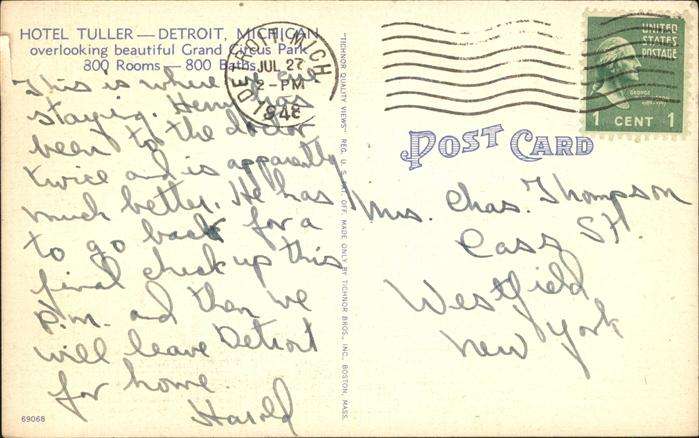 HOTEL TULLER — DETROIT, MICHIGAN
overlooking beautiful Grand Circus Park
800 Rooms — 800 Baths
This is where we are
staying. Henry has
been to the doctor
twice and is apparently
much better. He has
to go back for a
final check up this
P.M. and then we
will leave Detroit
for home
Harold
69068
"TICHNOR QUALITY VIEWS" REG. U. S. PAT. OFF. MADE ONLY BY TICHNOR BROS., INC., BOSTON, MASS.
DETROIT, MICH
JUL 27
2-PM
1948
UNITED
STATES
POSTAGE
GEORGE
WASHINGTON
1 CENT 1
POST CARD
Mrs. Chas. Thompson
Cass St.
Westfield
New York